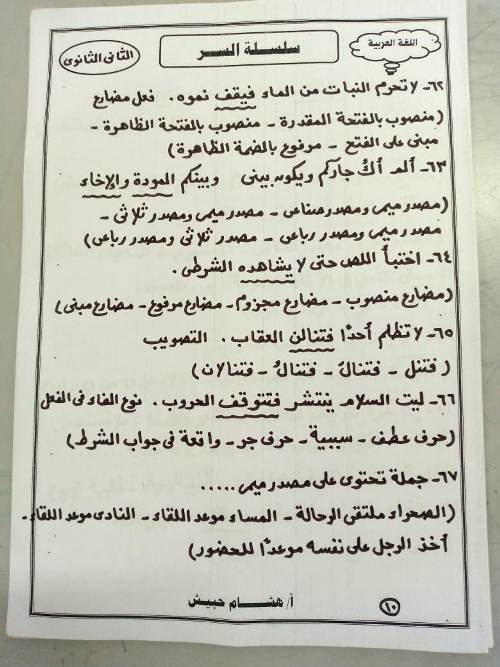 اللغة العربية
سلسلة السر
الثانى الثانوى
٦٢- لا تحرم النبات من الماء فيقف نموه. فعل مضارع
(منصوب بالفتحة المقدرة - منصوب بالفتحة الظاهرة -
مبنى على الفتح - مرفوع بالضمة الظاهرة)
٦٣- ألم أكُ جاركم ويكون بينى وبينكم المودة والإخاء
(مصدر ميمى ومصدر صناعى - مصدر ميمى ومصدر ثلاثى -
مصدر ميمى ومصدر رباعى - مصدر ثلاثى ومصدر رباعى)
٦٤- اختبأ اللص حتى لا يشاهده الشرطى.
(مضارع منصوب - مضارع مجزوم - مضارع مرفوع - مضارع مبنى)
٦٥- لا تظلم أحدًا فتنالن العقاب. التصويب
(فتنل - فتنالَ - فتنالُ - فتنالان)
٦٦- ليت السلام ينتشر فتتوقف الحروب. نوع الفاء فى الفعل
(حرف عطف - سببية - حرف جر - واقعة فى جواب الشرط)
٦٧- جملة تحتوى على مصدر ميمى.....
(الصحراء ملتقى الرحالة - المساء موعد اللقاء - النادى موعد اللقاء -
أخذ الرجل على نفسه موعدًا للحضور)
أ/ هشام حبيش
١٠